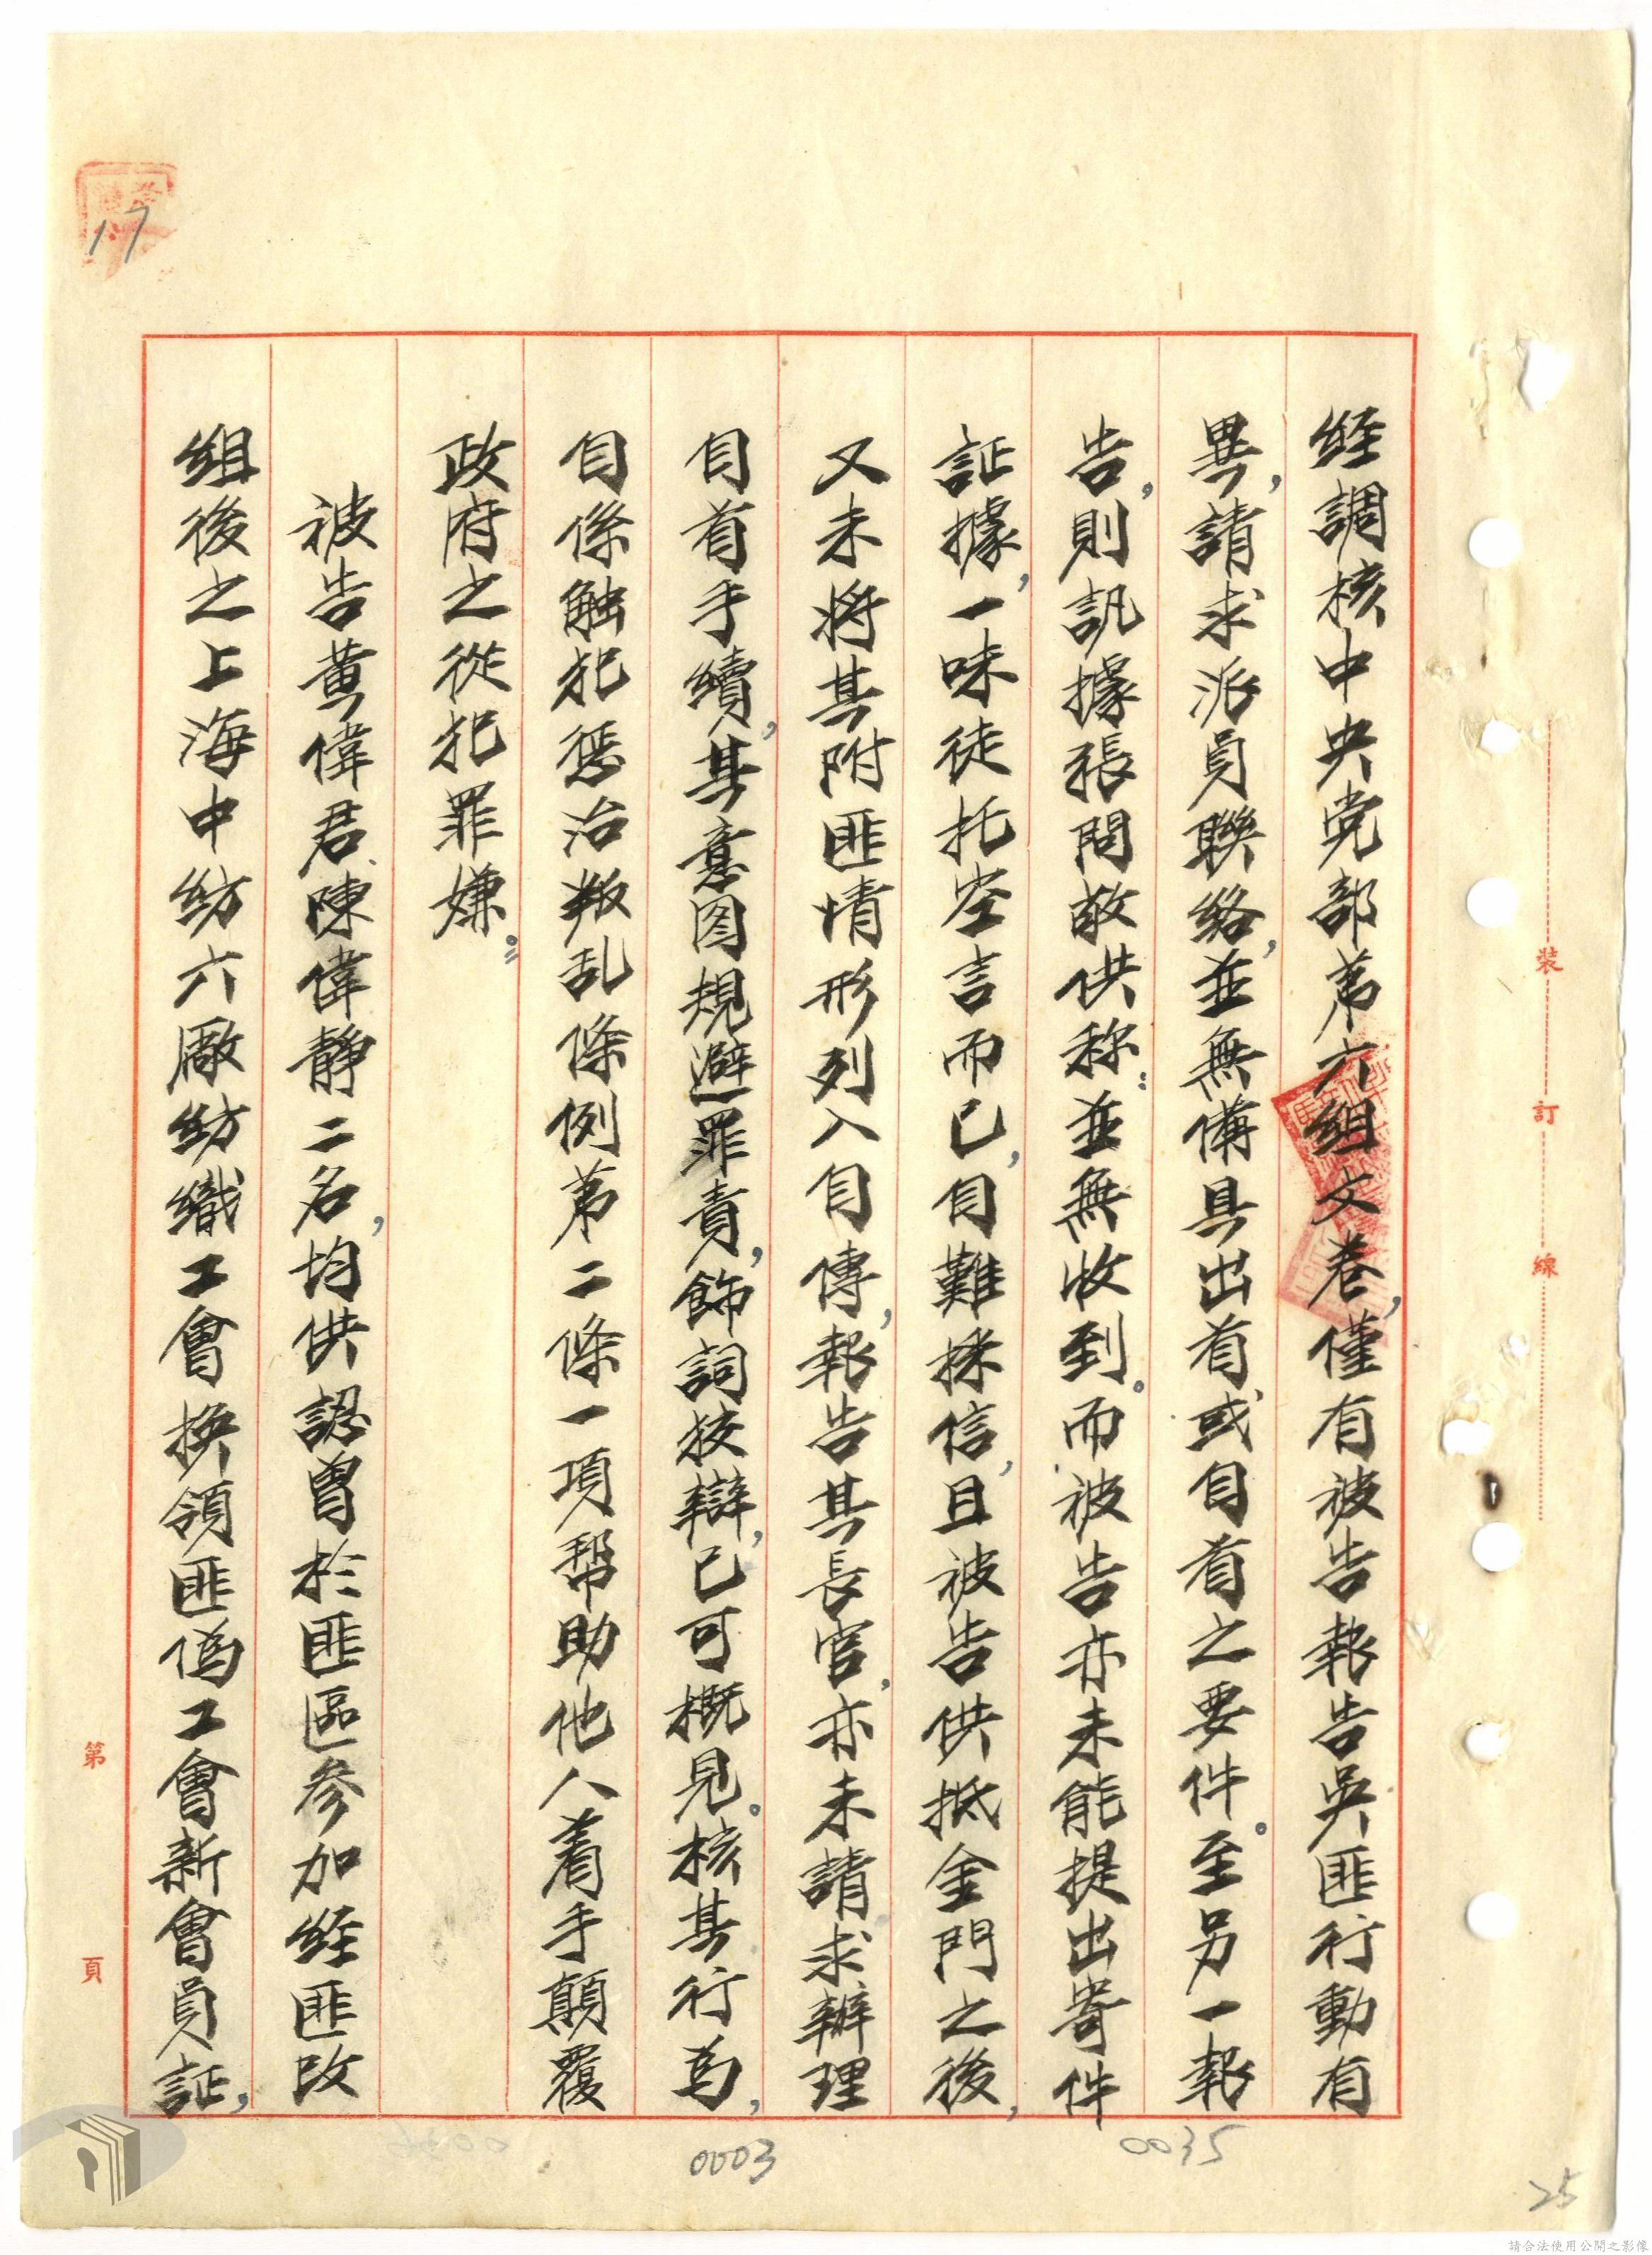 經調核中央党部苐六組文卷,僅有被告報告吳匪行動有
異,請求派員聯絡,並無備具出首或自首之要件。至另一報
告,則訊據張問敬供称:並無收到。而被告亦未能提出寄件
証據,一味徒托空言而已,自難採信,且被告供抵金門之後,
又未將其附匪情形列入自傳,報告其長官,亦未請求辦理
自首手續,其意图規避罪責,飾詞狡辯,已可概見。核其行為,
自係触犯惩治叛乱條例苐二條一項帮助他人着手顛覆
政府之從犯罪嫌。
被告黄偉君、陳偉靜二名,均供認曾於匪區參加經匪改
組後之上海中紡六廠紡織工會換領匪偽工會新會員証,
裝
訂
線
第
頁
17
0003
0035
25
請合法使用公開之影像